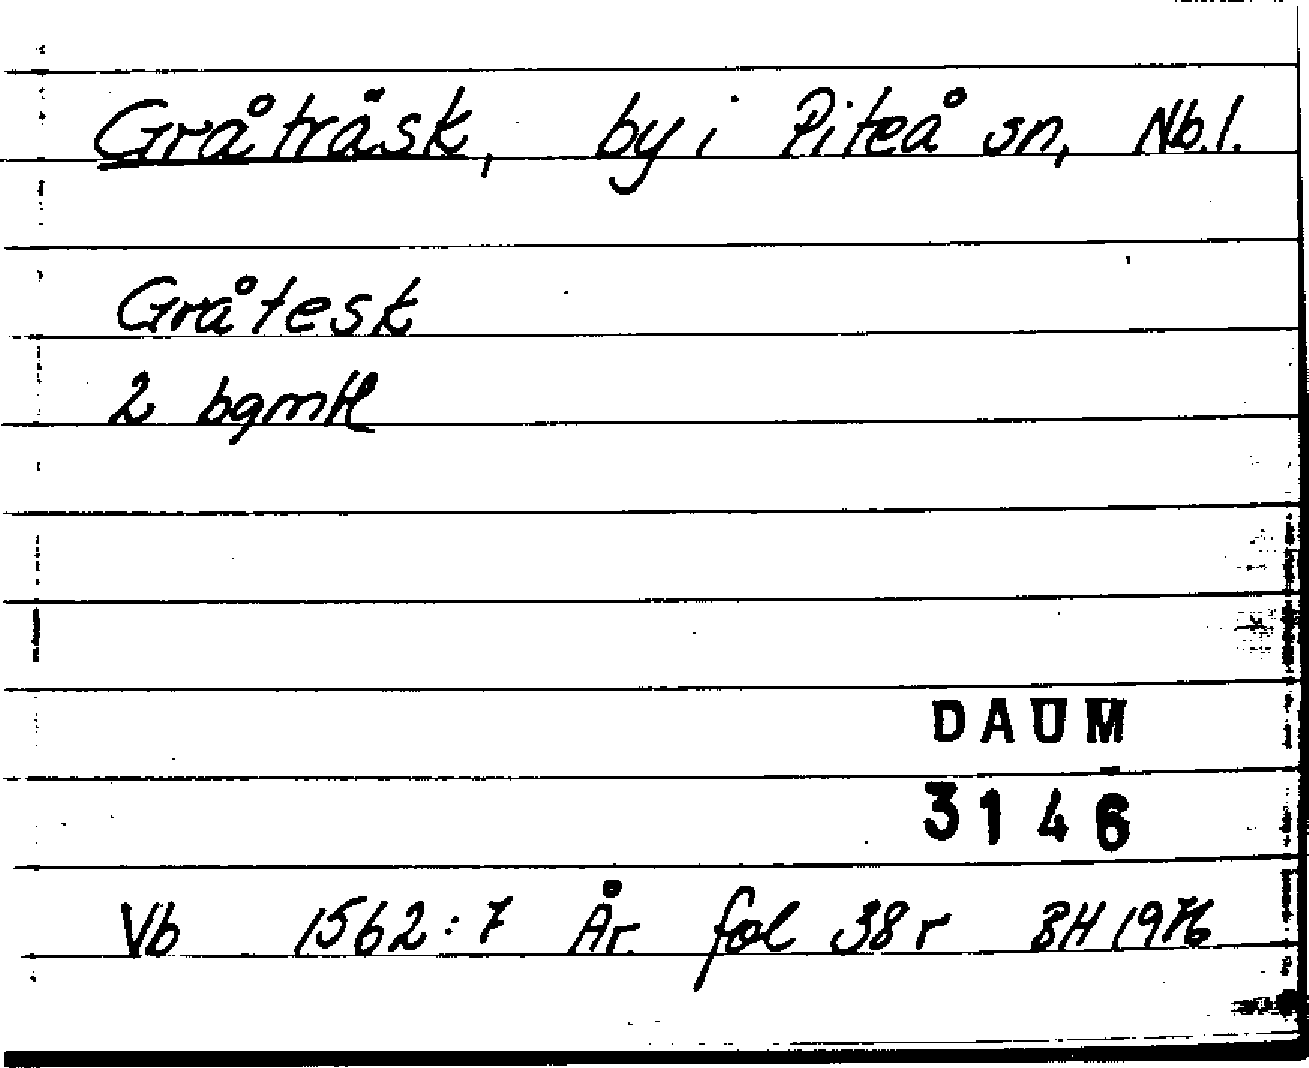 Gråträsk, by i Piteå sn, Nb.l.
Gråtesk
2 bgmtl
DAUM
3146
Vb 1562:7 År. fol 38 r BH 1976